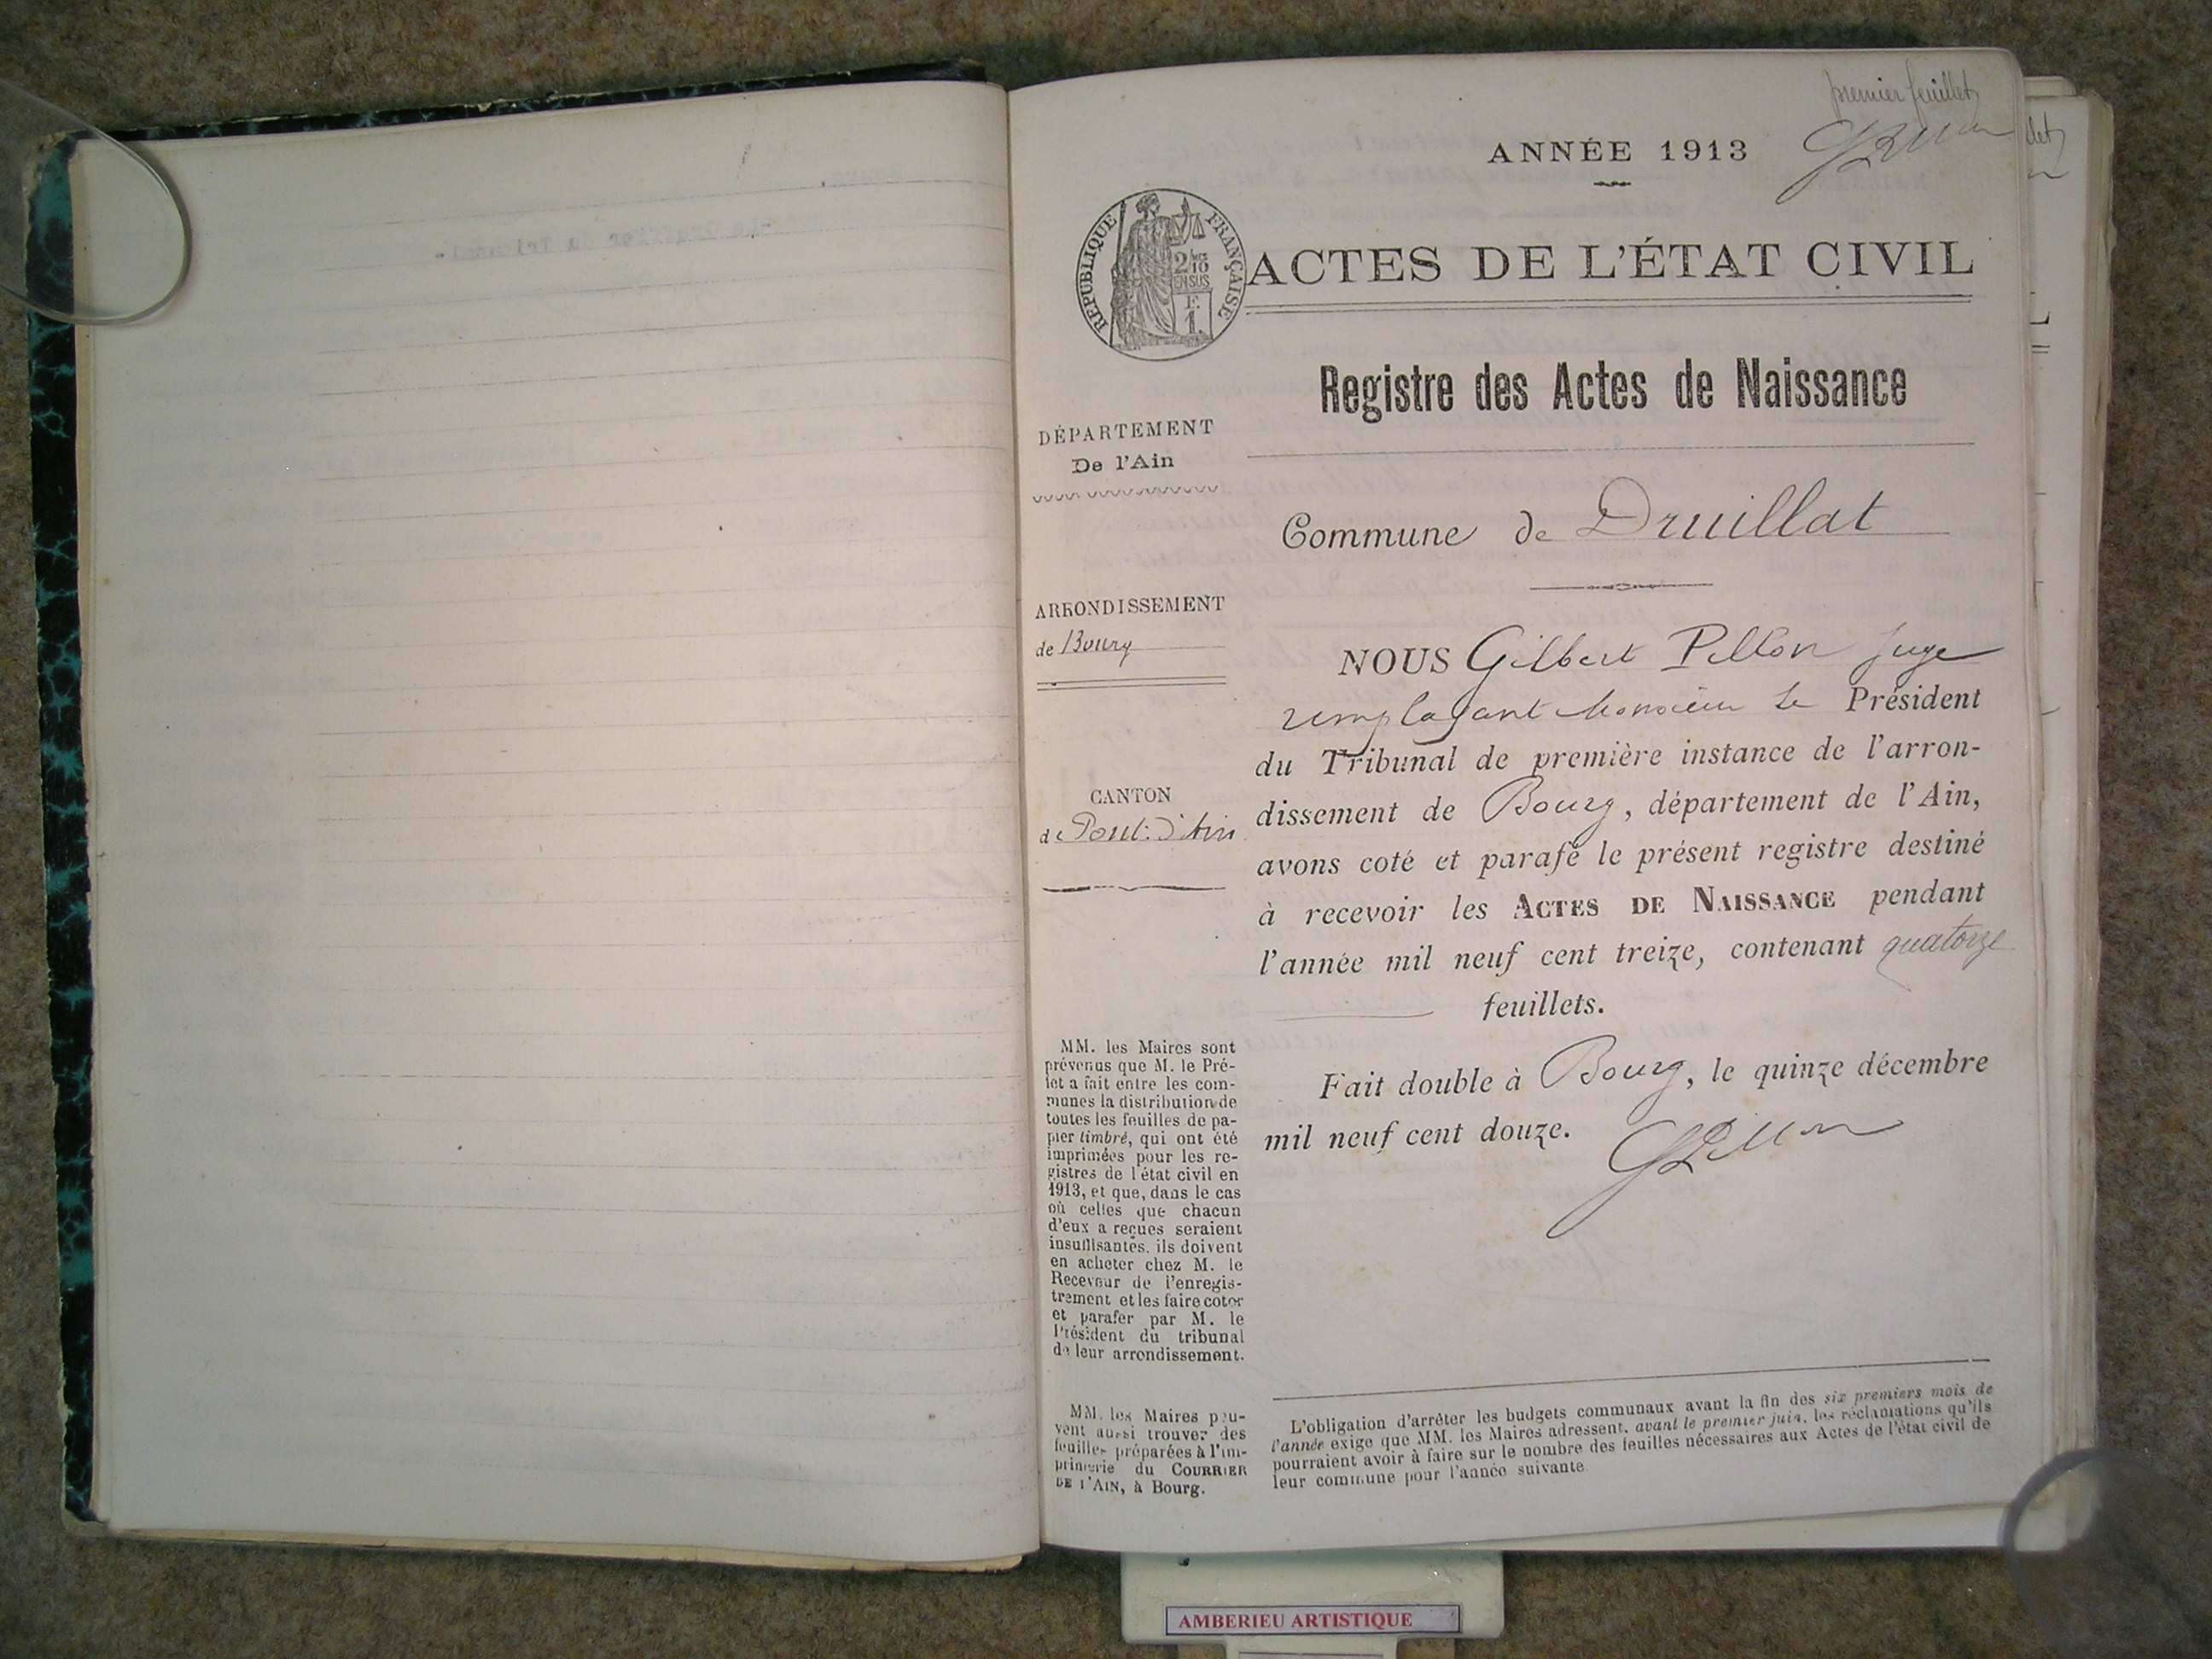 premier feuillet
ANNÉE 1913
RÉPUBLIQUE FRANÇAISE
2/10
EN SUS
E.
1.
ACTES DE L'ÉTAT CIVIL
Registre des Actes de Naissance
DÉPARTEMENT
De l'Ain
Commune de Druillat
ARRONDISSEMENT
de Bourg
CANTON
de Pont-d'Ain
NOUS Gilbert Pellon juge
remplaçant Monsieur le Président
du Tribunal de première instance de l'arron-
dissement de Bourg, département de l'Ain,
avons coté et parafé le présent registre destiné
à recevoir les ACTES DE NAISSANCE pendant
l'année mil neuf cent treize, contenant quatorze
feuillets.
Fait double à Bourg, le quinze décembre
mil neuf cent douze.
MM. les Maires sont
prévenus que M. le Pré-
fet a fait entre les com-
munes la distribution de
toutes les feuilles de pa-
pier timbré, qui ont été
imprimées pour les re-
gistres de l'état civil en
1913, et que, dans le cas
où celles que chacun
d'eux a reçues seraient
insuffisantes, ils doivent
en acheter chez M. le
Receveur de l'enregis-
trement et les faire coter
et parafer par M. le
Président du tribunal
de leur arrondissement.
MM. les Maires peu-
vent aussi trouver des
feuilles préparées à l'im-
primerie du COURRIER
DE L'AIN, à Bourg.
L'obligation d'arrêter les budgets communaux avant la fin des six premiers mois de
l'année exige que MM. les Maires adressent, avant le premier juin, les réclamations qu'ils
pourraient avoir à faire sur le nombre des feuilles nécessaires aux Actes de l'état civil de
leur commune pour l'année suivante.
AMBERIEU ARTISTIQUE